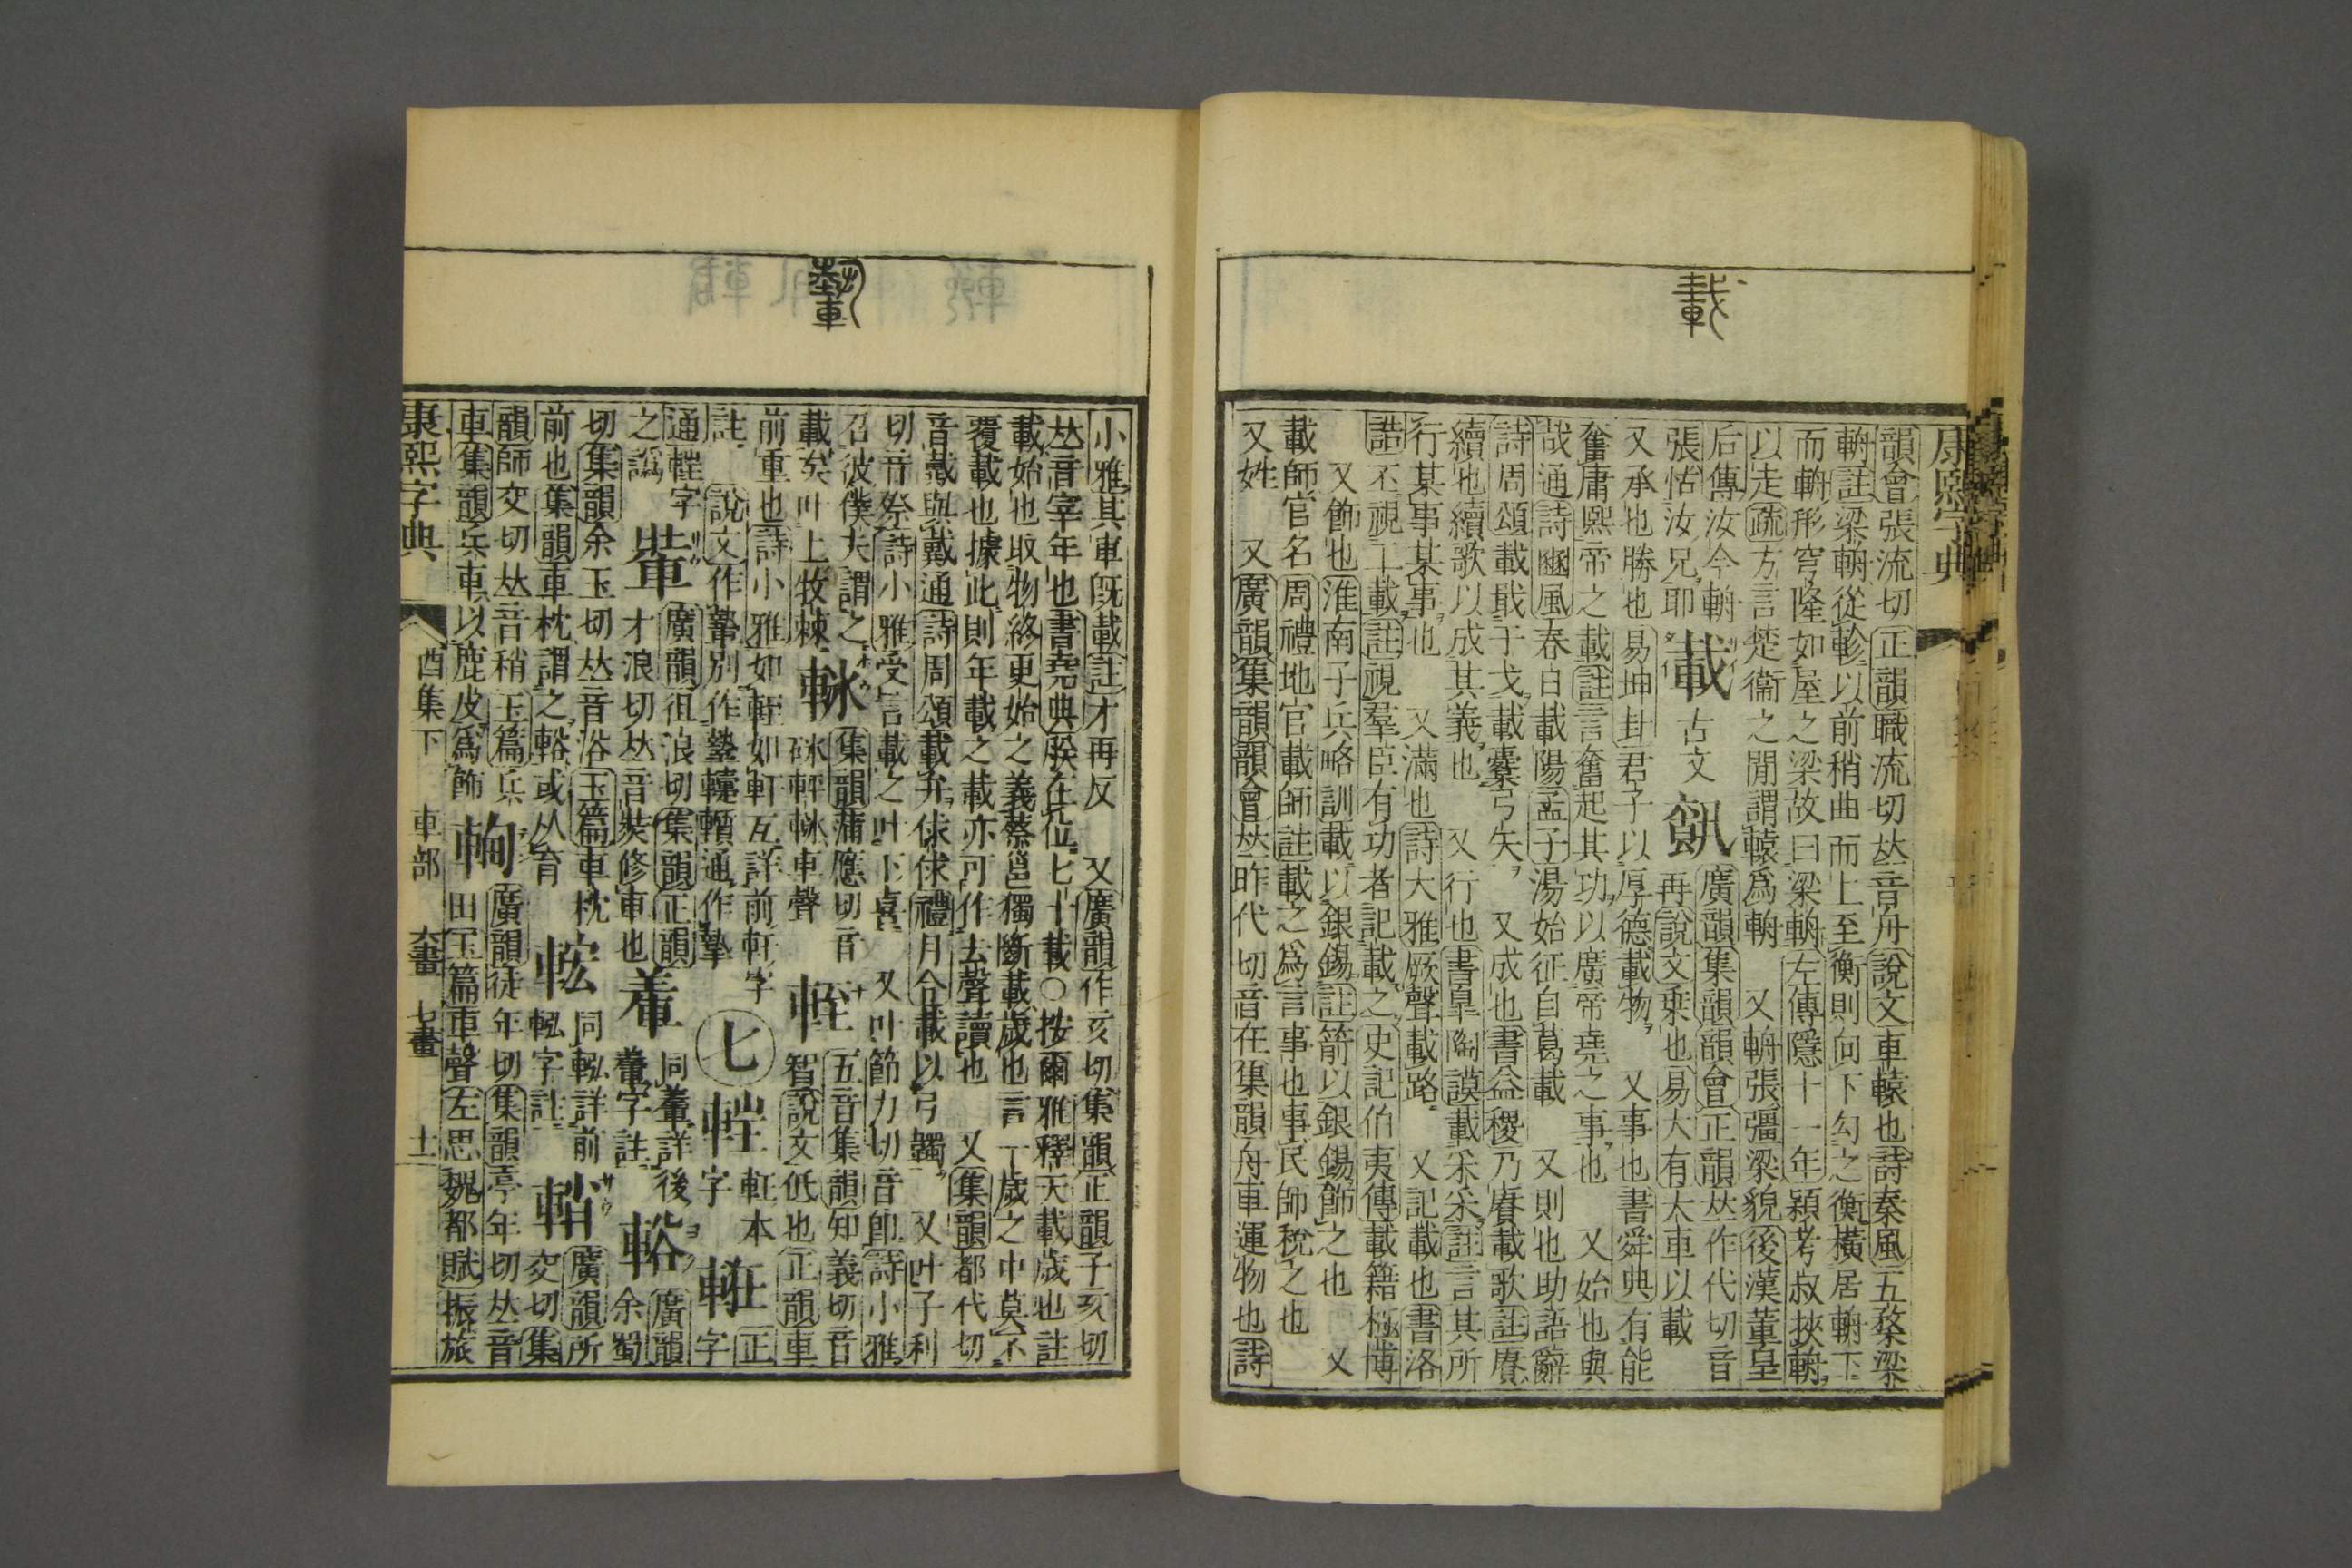 載
韻會張流切正韻職流切𠀤音舟說文車轅也詩秦風五楘梁
輈註梁輈從軫以前稍曲而上至衡則向下勾之衡橫居輈下
而輈形穹隆如屋之梁故曰梁輈左傳隱十一年穎考叔挾輈
以走疏方言楚衞之閒謂轅爲輈 又輈張彊梁貌後漢董皇
后傳汝今輈
張怙汝兄耶
載 古文 𩚳 廣韻集韻韻會正韻𠀤作代切音
再說文乗也易大有大車以載
又承也勝也易坤卦君子以厚德載物 又事也書舜典有能
奮庸熙帝之載註言奮起其功以廣帝堯之事也 又始也與
哉通詩豳風春日載陽孟子湯始征自葛載 又則也助語辭
詩周頌載戢干戈載櫜弓矢 又成也書益稷乃賡載歌註賡
續也續歌以成其義也 又行也書皐陶謨載采采註言其所
行某事某事也 又滿也詩大雅厥聲載路 又記載也書洛
誥丕視工載註視羣臣有功者記載之史記伯夷傳載籍極博
又飾也淮南子兵略訓載以銀錫註箭以銀錫飾之也 又
載師官名周禮地官載師註載之爲言事也事民師稅之也
又姓 又廣韻集韻韻會𠀤昨代切音在集韻舟車運物也詩
康熙字典
小雅其車旣載註才再反 又廣韻作亥切集韻正韻子亥切
𠀤音宰年也書堯典朕在位七十載○按爾雅釋天載歲也註
載始也取物終更始之義蔡邕獨斷載歲也言一歲之中莫不
覆載也據此則年載之載亦可作去聲讀也 又集韻都代切
音戴與戴通詩周頌載弁俅俅禮月令載以弓韣 又叶子利
切音祭詩小雅受言載之叶下喜 又叶節力切音卽詩小雅
召彼僕夫謂之
載矣叶上牧棘
𨋮 集韻蒲應切音
砯軯𨋮車聲
輊 五音集韻知義切音
智說文低也正韻車
前重也詩小雅如輊如軒互詳前軒字
註 說文作𨎌別作蟄轾輖通作摯
七
𨋽 軖本
字
𨋹 正
字
通𨋽字
之譌
𨋯 廣韻徂浪切集韻正韻
才浪切𠀤音奘修車也
𨋾 同𨎤詳後
𨎤字註
𨋼 廣韻
余蜀
切集韻余玉切𠀤音浴玉篇車枕
前也集韻車枕謂之𨋼或从育
𨋿 同軦詳前
軦字註
䡕 廣韻所
交切集
韻師交切𠀤音稍玉篇兵
車集韻兵車以鹿皮爲飾
䡘 廣韻徒年切集韻亭年切𠀤音
田玉篇車聲左思魏都賦振旅
康熙字典 酉集下 車部 六畫 七畫 十一